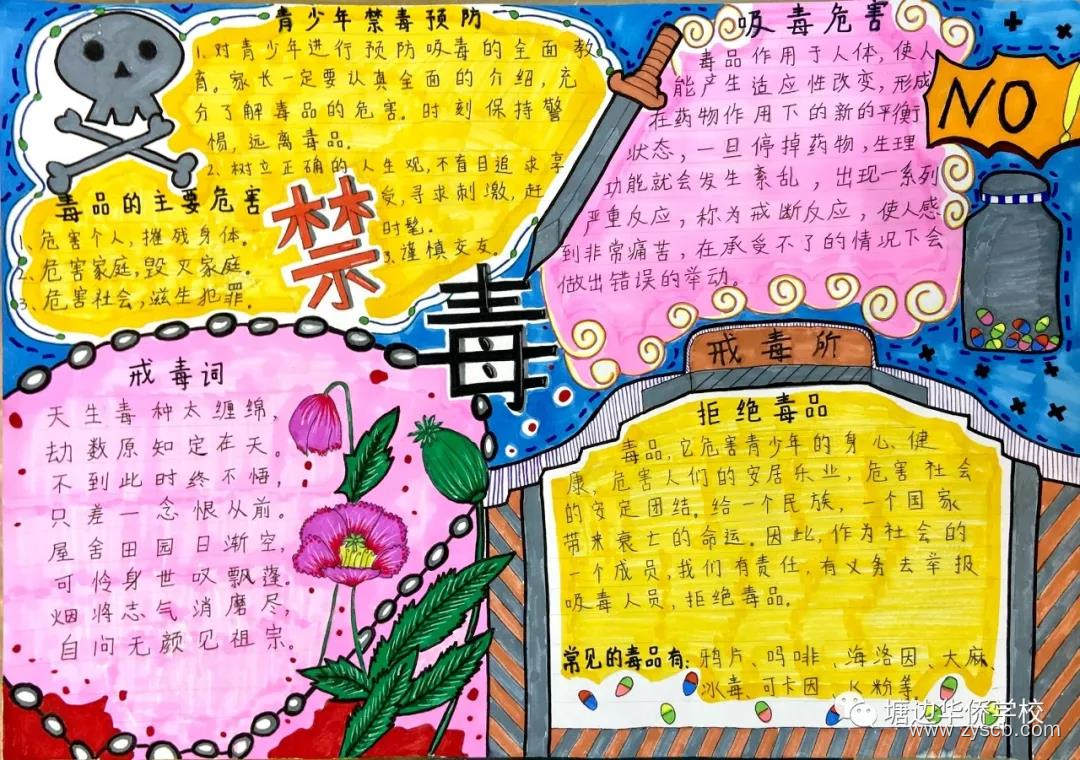 青少年禁毒预防
1、对青少年进行预防吸毒的全面教
育。家长一定要认真全面的介绍，充
分了解毒品的危害。时刻保持警
惕，远离毒品。
2、树立正确的人生观，不盲目追求享
受，寻求刺激，赶
时髦。
3、谨慎交友。
毒品的主要危害
1、危害个人，摧残身体。
2、危害家庭，毁灭家庭。
3、危害社会，滋生犯罪。
禁
毒
吸毒危害
毒品作用于人体，使人
能产生适应性改变，形成
在药物作用下的新的平衡
状态，一旦停掉药物，生理
功能就会发生紊乱，出现一系列
严重反应，称为戒断反应，使人感
到非常痛苦，在承受不了的情况下会
做出错误的举动。
NO
戒毒词
天生毒种太缠绵，
劫数原知定在天。
不到此时终不悟，
只差一念恨从前。
屋舍田园日渐空，
可怜身世叹飘蓬。
烟将志气消磨尽，
自问无颜见祖宗。
戒毒所
拒绝毒品
毒品，它危害青少年的身心、健
康，危害人们的安居乐业，危害社会
的安定团结。给一个民族，一个国家
带来衰亡的命运。因此，作为社会的
一个成员，我们有责任，有义务去举报
吸毒人员，拒绝毒品。
常见的毒品有：鸦片、吗啡、海洛因、大麻、
冰毒、可卡因、K粉等。
塘边华侨学校
www.zyscb.com